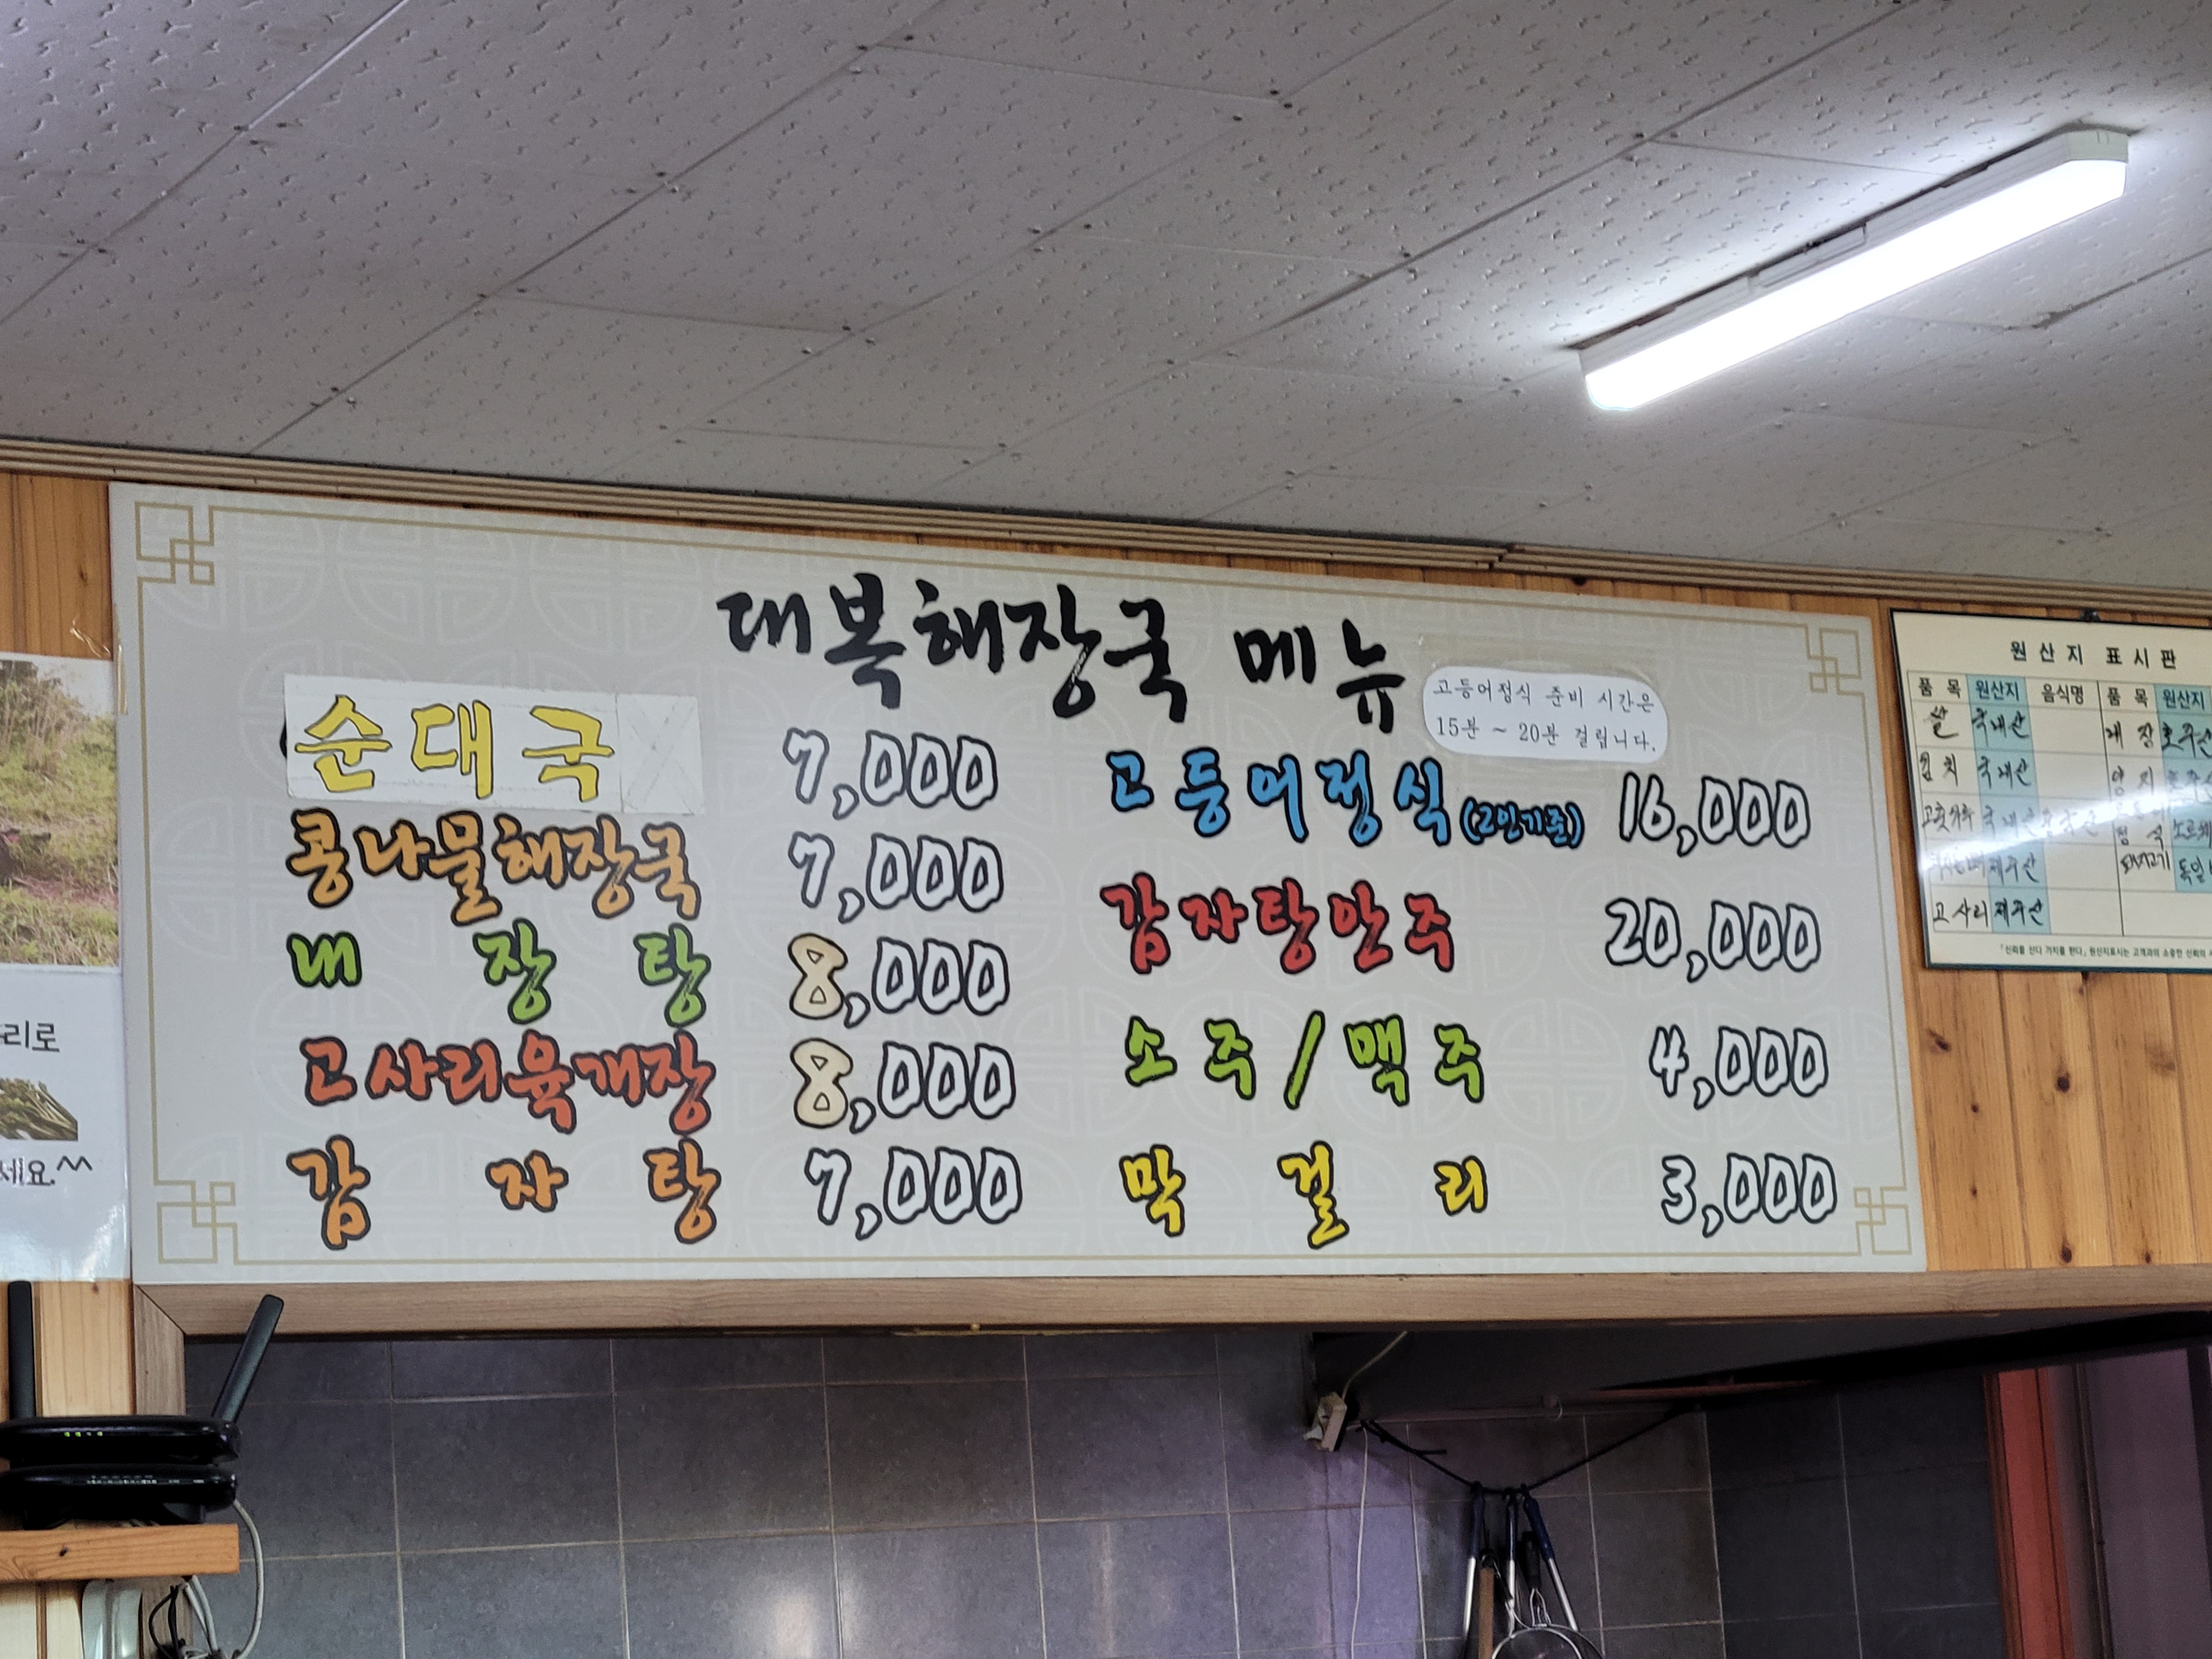 대복해장국 메뉴
고등어정식 준비 시간은
15분 ~ 20분 걸립니다.
순대국 7,000
콩나물해장국 7,000
내장탕 8,000
고사리육개장 8,000
감자탕 7,000
고등어정식(2인기준) 16,000
감자탕안주 20,000
소주/맥주 4,000
막걸리 3,000
원산지 표시판
품목 원산지 음식명 품목 원산지
쌀 국내산 내장 호주산
김치 국내산 양지
고춧가루
고사리 제주산
돼지고기 독일
「신뢰를 산다 가치를 판다」 원산지표시는 고객과의 소중한 신뢰의
리로
세요.^^